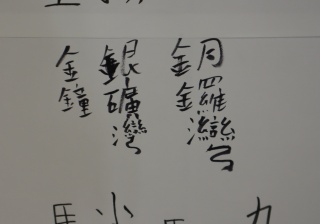 銅鑼灣
銀礦灣
金鐘